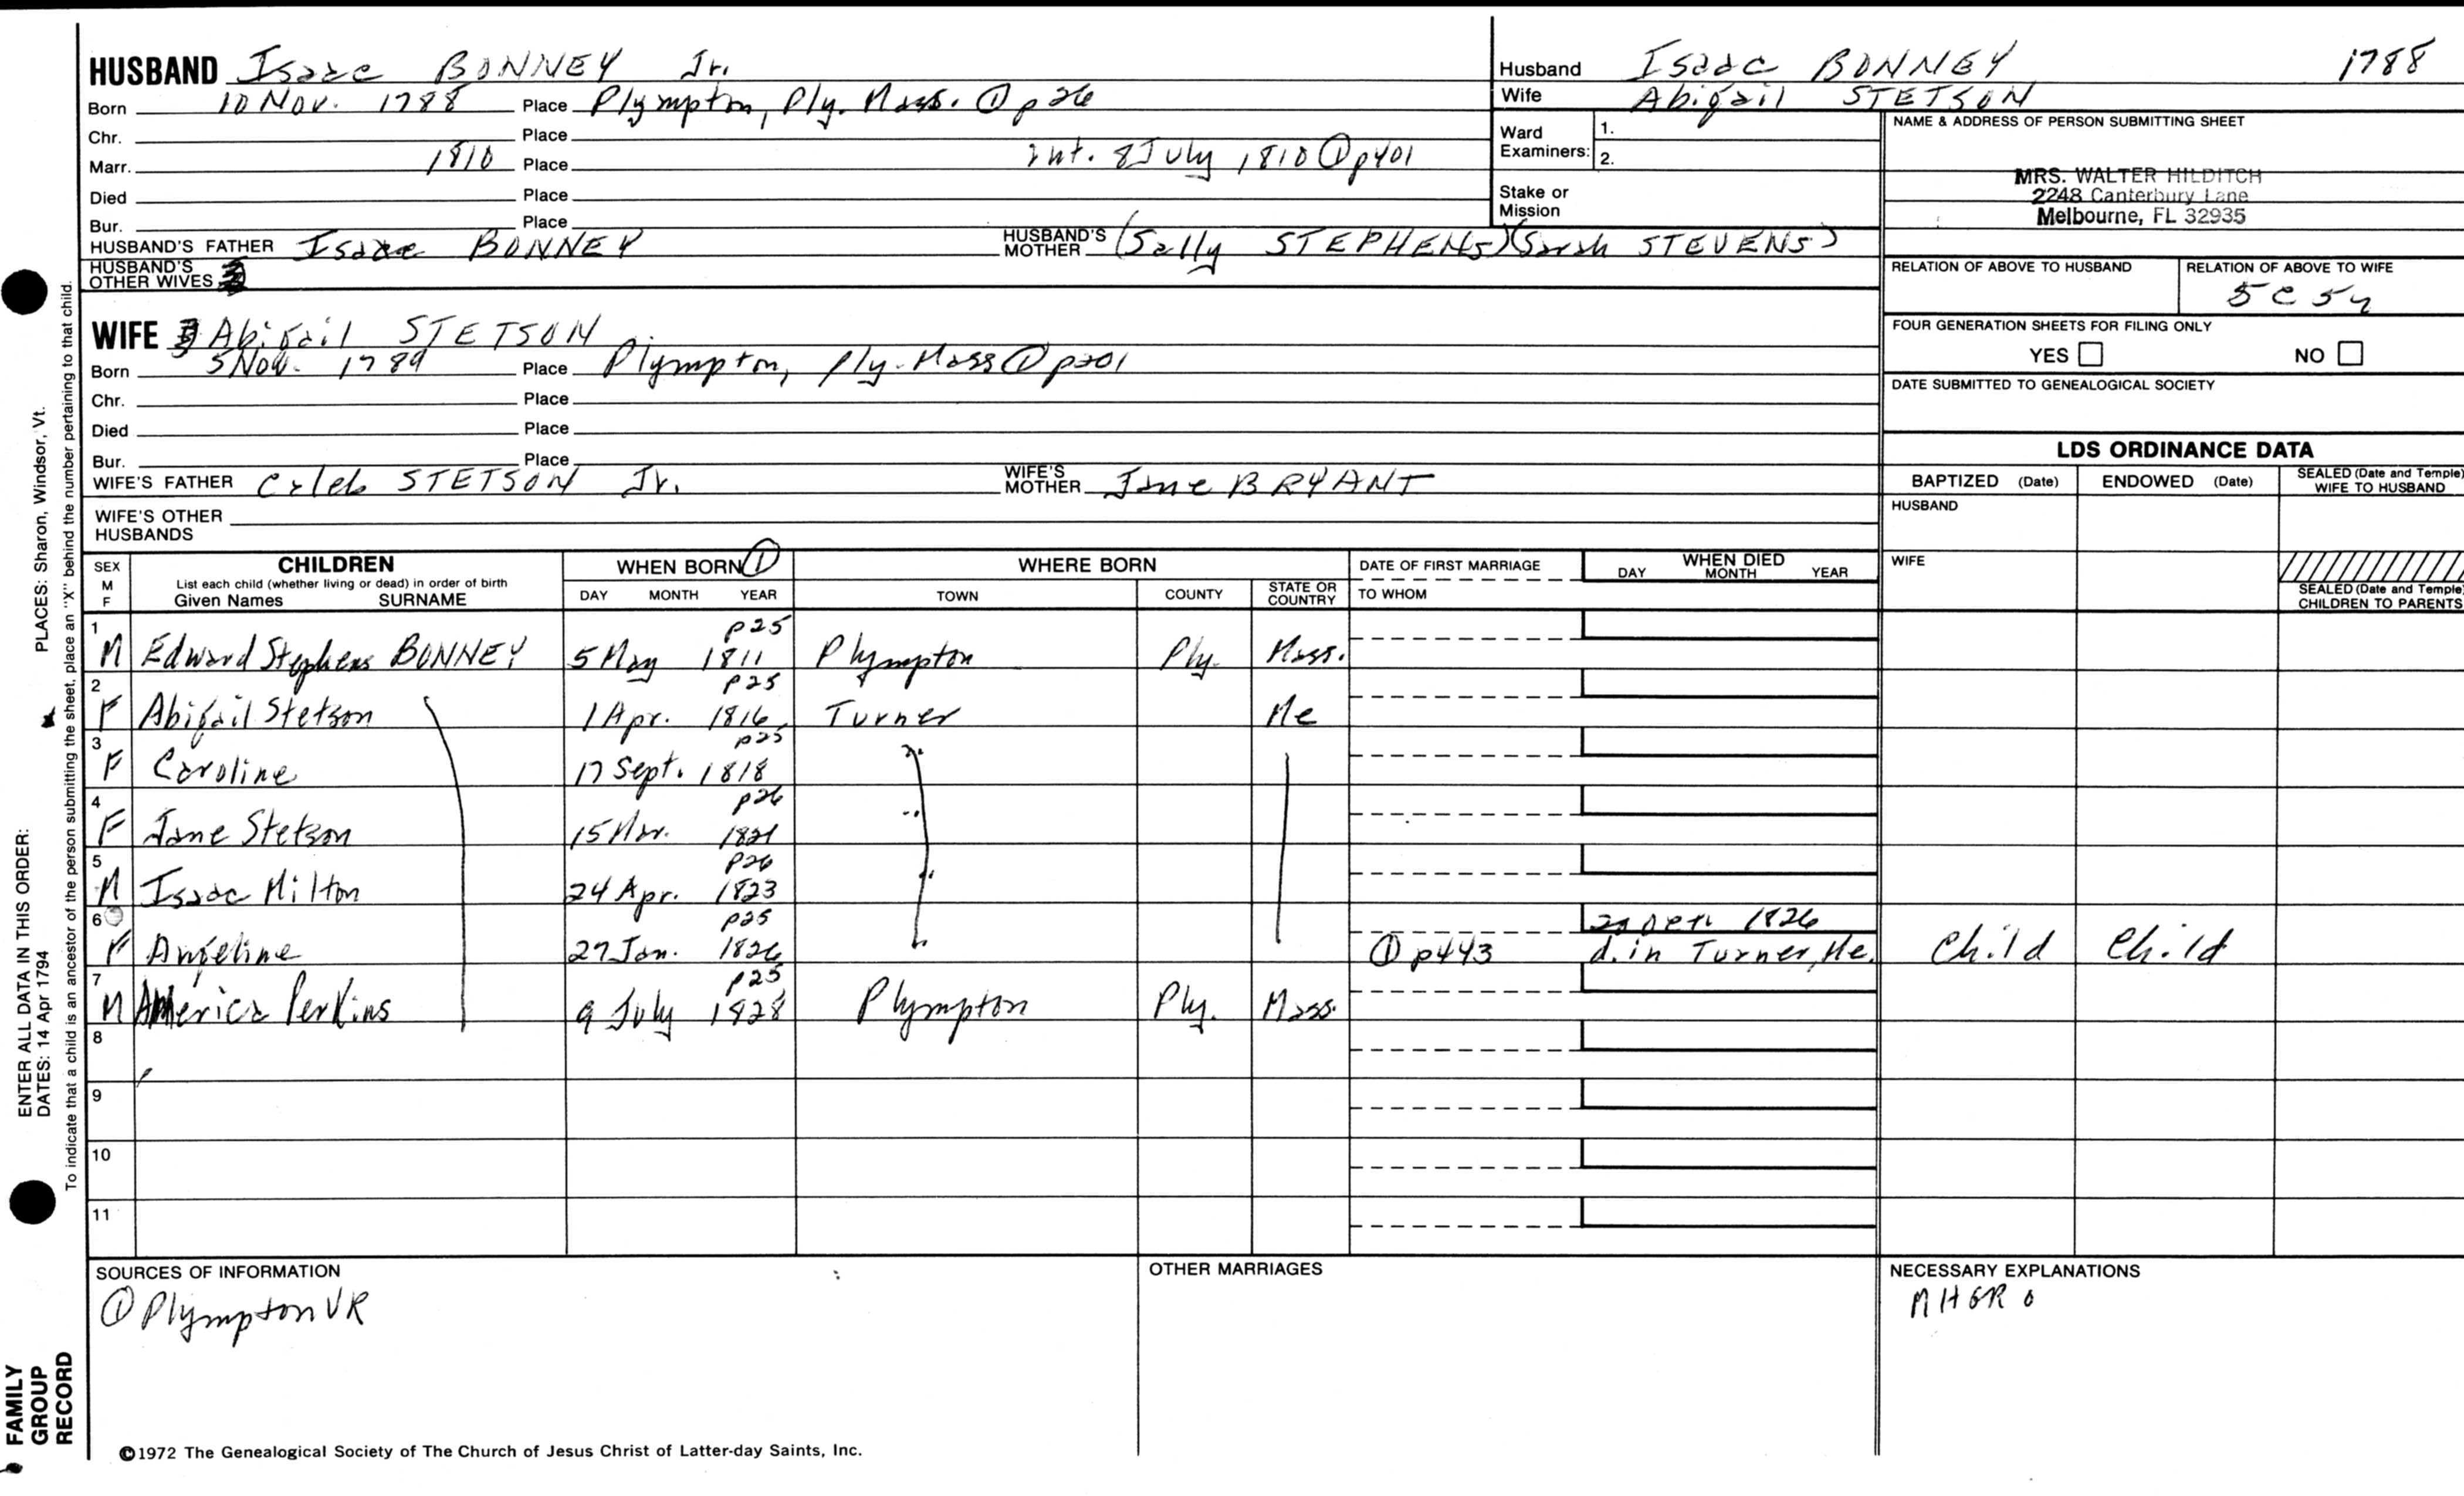 HUSBAND Isaac BONNEY Jr.
Born 10 Nov. 1788 Place Plympton, Ply. Mass. ① p26
Chr. Place
Marr. 1810 Place Int. 8 July 1810 ① p401
Died Place
Bur. Place
HUSBAND'S FATHER Isaac BONNEY HUSBAND'S MOTHER (Sally STEPHENS) (Sarah STEVENS)
HUSBAND'S OTHER WIVES
Husband Isaac BONNEY 1788
Wife Abigail STETSON
Ward Examiners: 1. 2.
Stake or Mission
NAME & ADDRESS OF PERSON SUBMITTING SHEET
MRS. WALTER HILDITCH
2248 Canterbury Lane
Melbourne, FL 32935
RELATION OF ABOVE TO HUSBAND RELATION OF ABOVE TO WIFE
5C 5
FOUR GENERATION SHEETS FOR FILING ONLY
YES NO
DATE SUBMITTED TO GENEALOGICAL SOCIETY
WIFE Abigail STETSON
Born 5 Nov. 1789 Place Plympton, Ply. Mass ① p201
Chr. Place
Died Place
Bur. Place
WIFE'S FATHER Caleb STETSON Jr. WIFE'S MOTHER Jane BRYANT
WIFE'S OTHER HUSBANDS
LDS ORDINANCE DATA
BAPTIZED (Date) ENDOWED (Date) SEALED (Date and Temple) WIFE TO HUSBAND
HUSBAND
WIFE
SEALED (Date and Temple) CHILDREN TO PARENTS
SEX M F CHILDREN WHEN BORN ① WHERE BORN DATE OF FIRST MARRIAGE WHEN DIED
List each child (whether living or dead) in order of birth
Given Names SURNAME DAY MONTH YEAR TOWN COUNTY STATE OR COUNTRY TO WHOM DAY MONTH YEAR
1 p25
M Edward Stephens BONNEY 5 May 1811 Plympton Ply. Mass.
2 p25
F Abigail Stetson 1 Apr. 1816 Turner Me
3 p25
F Caroline 17 Sept. 1818
4 p26
F Jane Stetson 15 Mar. 1821
5 p26
M Isaac Milton 24 Apr. 1823
6 p25 1826
F Angeline 27 Jan. 1826 ① p443 d. in Turner, Me. Child Child
7 p25
M America Perkins 9 July 1828 Plympton Ply. Mass.
8
9
10
11
SOURCES OF INFORMATION OTHER MARRIAGES NECESSARY EXPLANATIONS
① Plympton VR MHGR
©1972 The Genealogical Society of The Church of Jesus Christ of Latter-day Saints, Inc.
FAMILY GROUP RECORD
ENTER ALL DATA IN THIS ORDER:
DATES: 14 Apr 1794 PLACES: Sharon, Windsor, Vt.
To indicate that a child is an ancestor of the person submitting the sheet, place an "X" behind the number pertaining to that child.